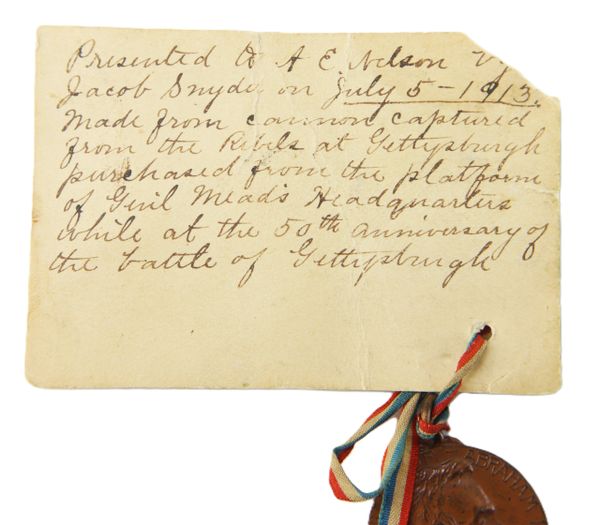 Presented to A E Nelson by
Jacob Snyder on July 5-1913.
Made from cannon captured
from the Rebels at Gettysburgh
purchased from the platform
of Genl Mead's Headquarters
while at the 50th anniversary of
the battle of Gettysburgh
ABRAHAM